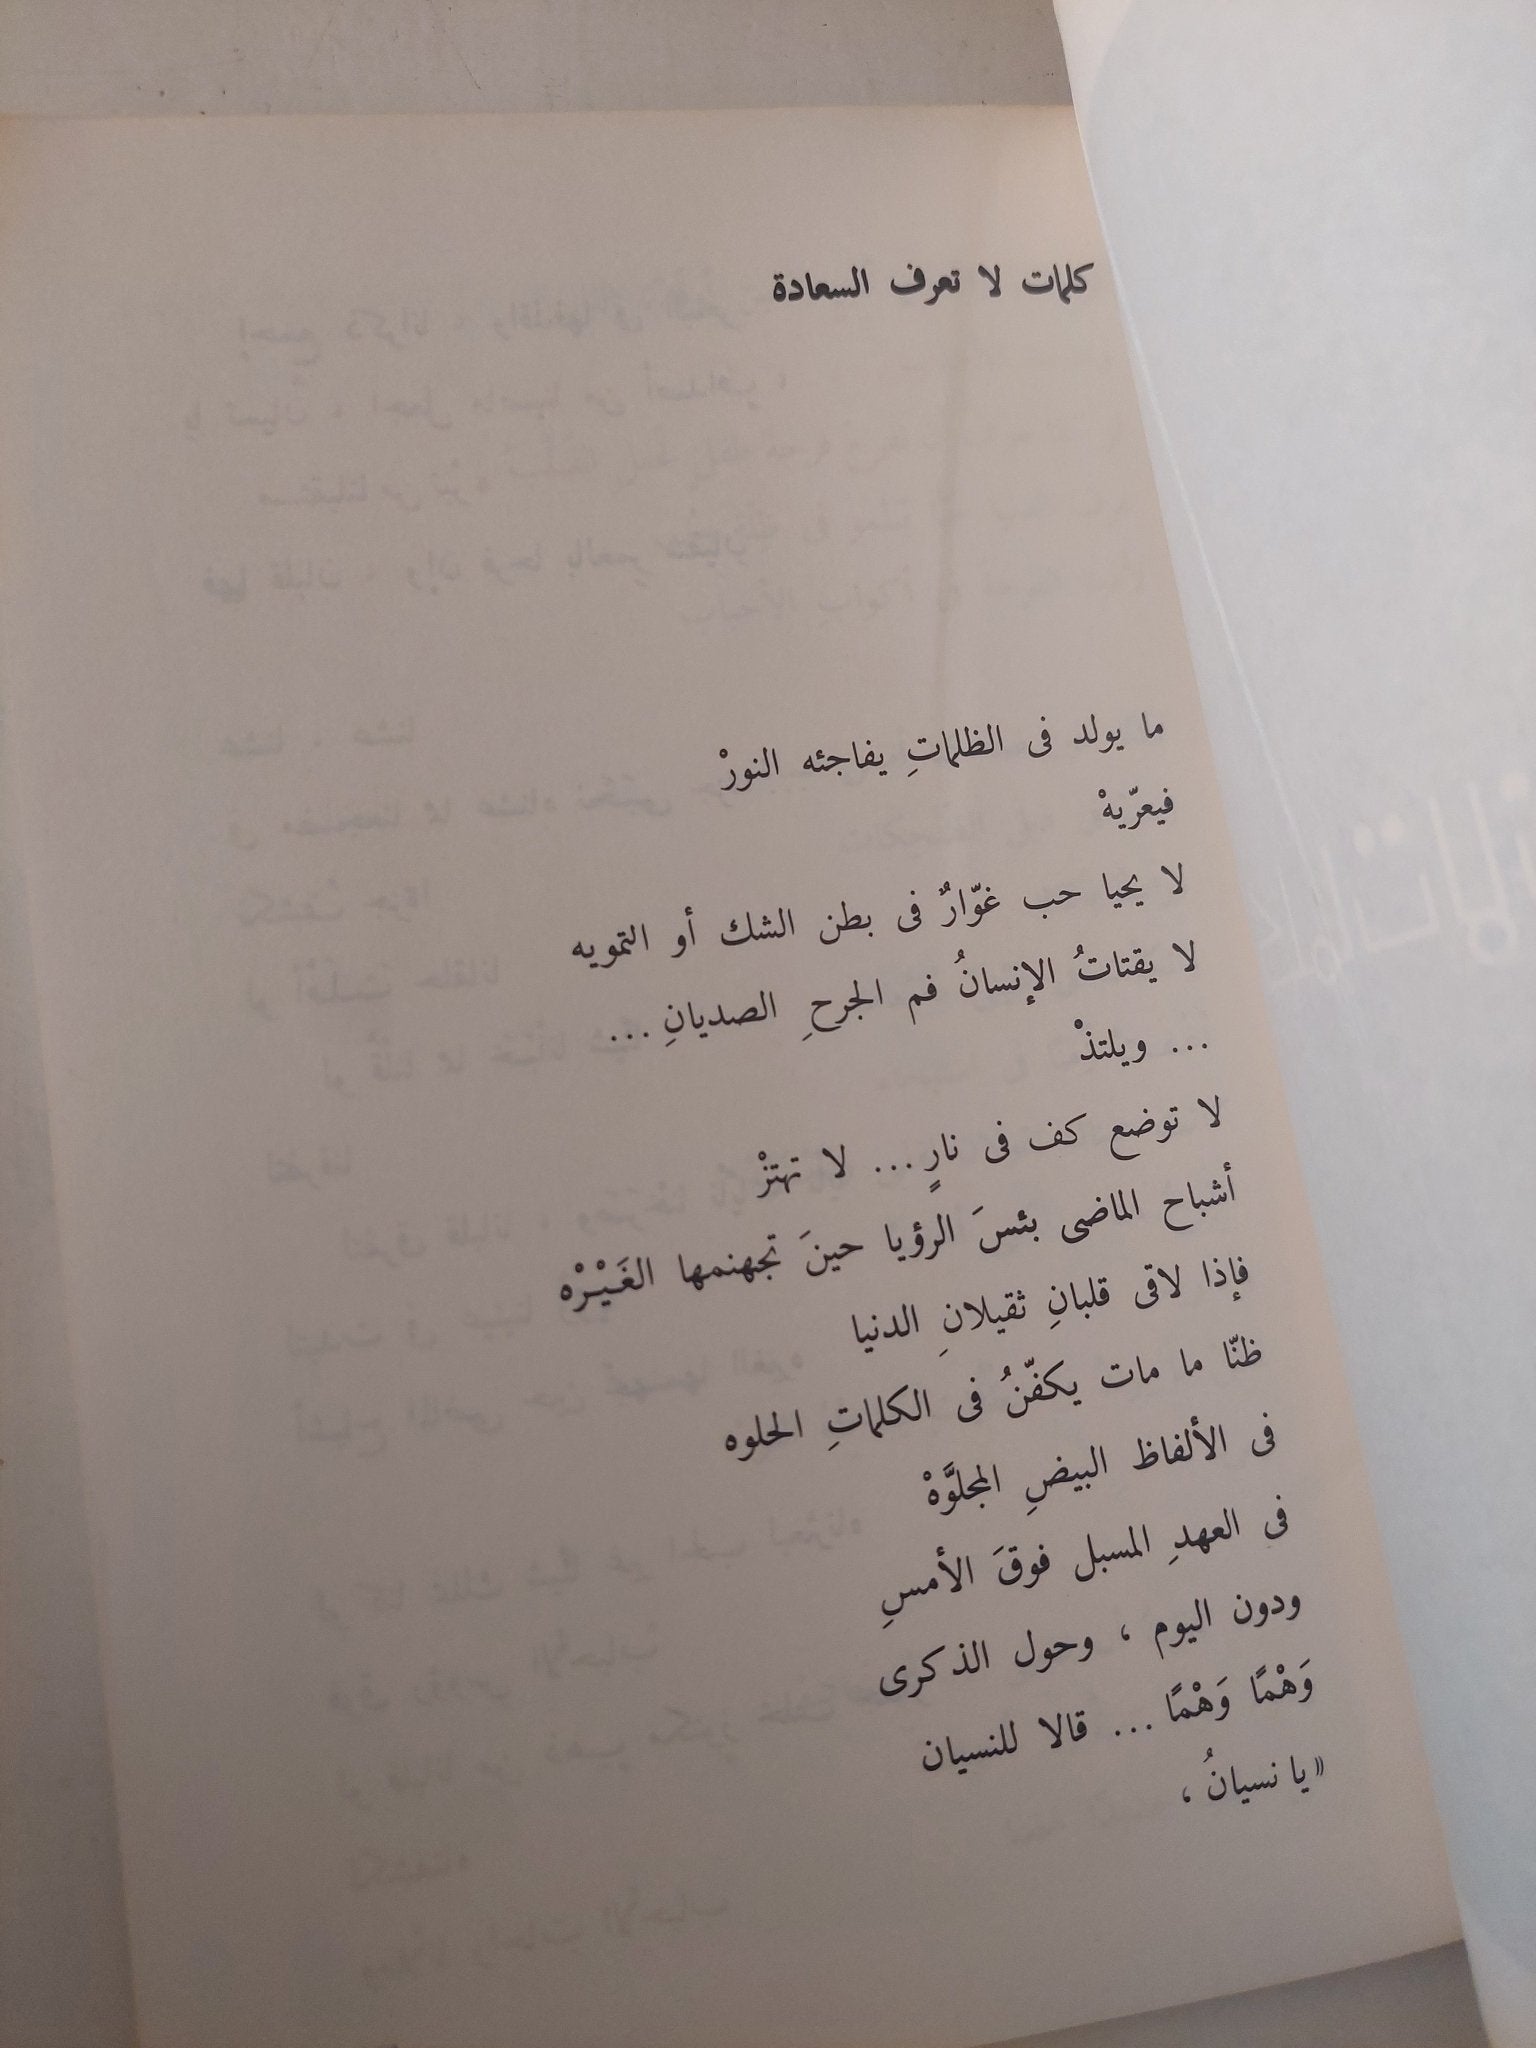 كلمات لا تعرف السعادة
ما يولد فى الظلماتِ يفاجئه النورْ
فيعرّيهْ
لا يحيا حب غوّارٌ فى بطن الشك أو التمويه
لا يقتاتُ الإنسانُ فم الجرحِ الصديانِ ...
... ويلتذْ
لا توضع كف فى نارٍ ... لا تهتزْ
أشباح الماضى بئسَ الرؤيا حينَ تجهنمها الغَيْرْه
فإذا لاقى قلبانِ ثقيلانِ الدنيا
ظنّا ما مات يكفّنُ فى الكلماتِ الحلوه
فى الألفاظ البيضِ المجلوَّهْ
فى العهدِ المسبل فوقَ الأمسِ
ودون اليوم ، وحول الذكرى
وَهْمًا وَهْمًا ... قالا للنسيان
« يا نسيانُ ،